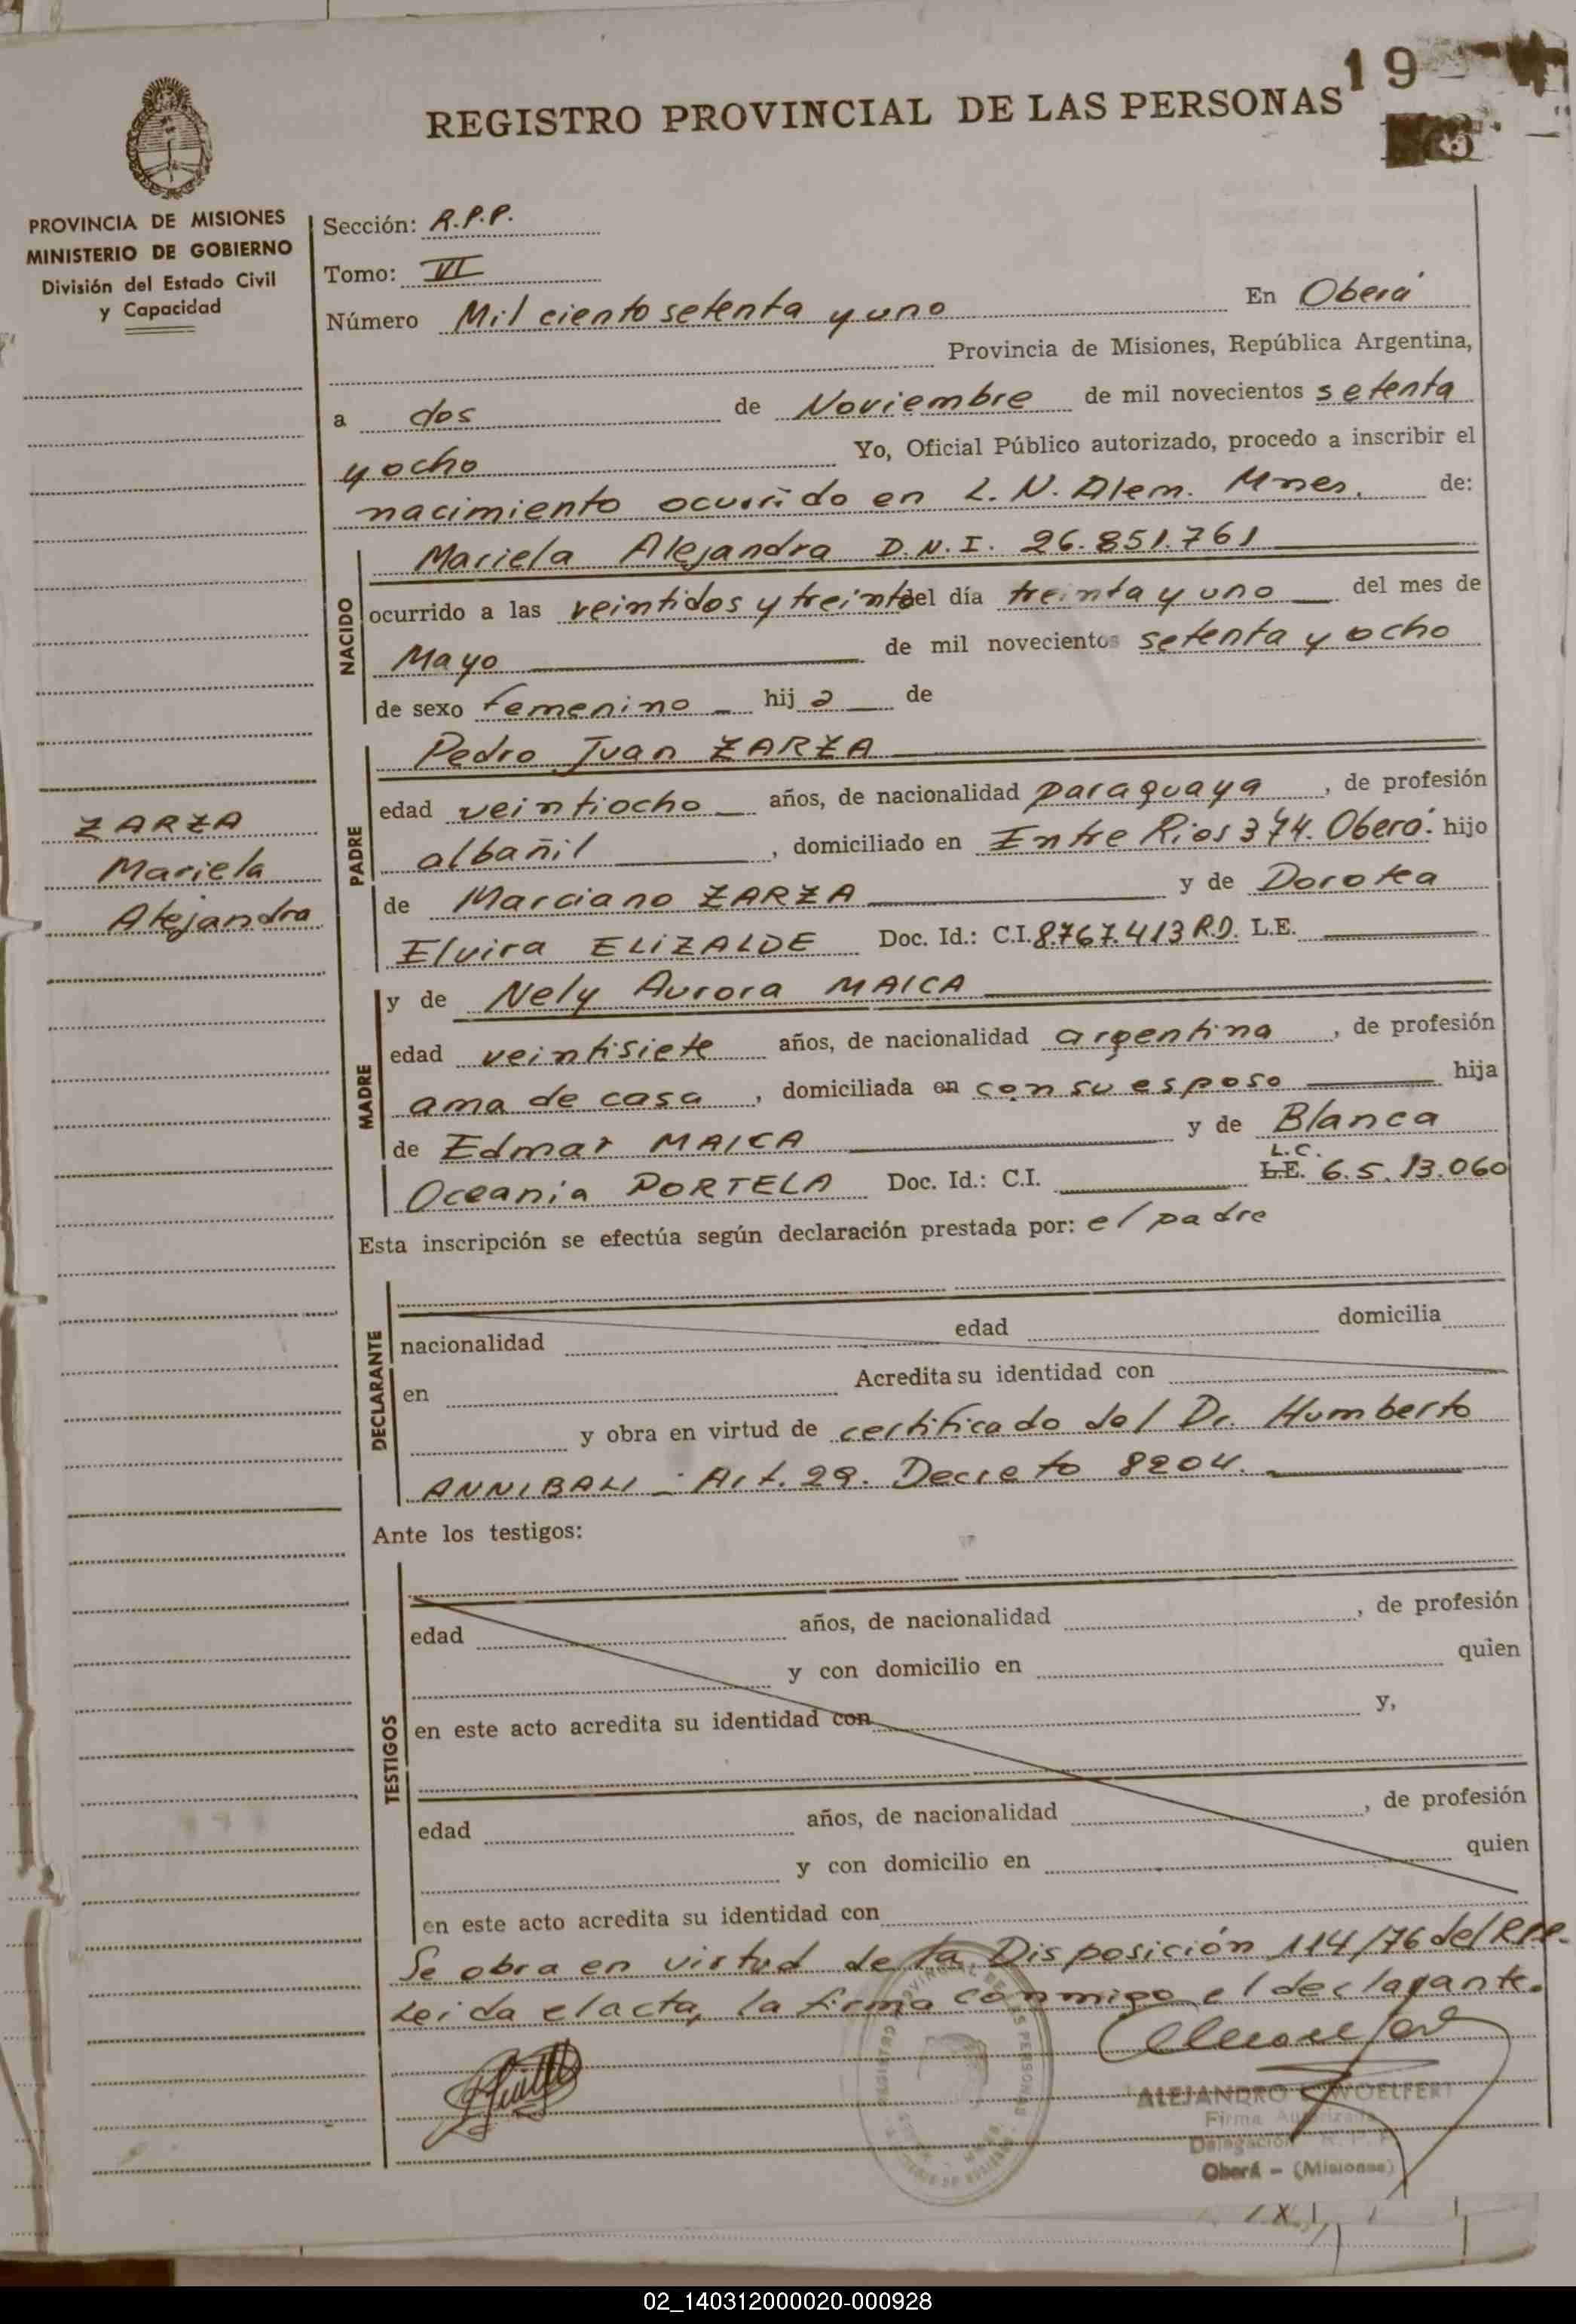 19
REGISTRO PROVINCIAL DE LAS PERSONAS
PROVINCIA DE MISIONES
MINISTERIO DE GOBIERNO
División del Estado Civil
y Capacidad
Sección: R.P.P.
Tomo: VI
Número Mil ciento setenta y uno En Oberá
Provincia de Misiones, República Argentina,
a dos de Noviembre de mil novecientos setenta
y ocho Yo, Oficial Público autorizado, procedo a inscribir el
nacimiento ocurrido en L. N. Alem. Mnes. de:
NACIDO
Mariela Alejandra D.N.I. 26.851.761
ocurrido a las veintidos y treinta del día treinta y uno del mes de
Mayo de mil novecientos setenta y ocho
de sexo femenino hij a de
PADRE
Pedro Juan ZARZA
edad veintiocho años, de nacionalidad paraguaya, de profesión
albañil, domiciliado en Entre Rios 374. Oberá. hijo
de Marciano ZARZA y de Dorotea
Elvira ELIZALDE Doc. Id.: C.I. 8.767.413 R.D. L.E.
ZARZA
Mariela
Alejandra
MADRE
y de Nely Aurora MAICA
edad veintisiete años, de nacionalidad argentina, de profesión
ama de casa, domiciliada en con su esposo hija
de Edmar MAICA y de Blanca
L.C.
Oceania PORTELA Doc. Id.: C.I. L.E. 6.5.13.060
Esta inscripción se efectúa según declaración prestada por: el padre
DECLARANTE
edad domicilia
nacionalidad
en Acredita su identidad con
y obra en virtud de certificado del Dr. Humberto
ANNIBALI - Art. 29. Decreto 8204.
Ante los testigos:
TESTIGOS
edad años, de nacionalidad , de profesión
y con domicilio en quien
en este acto acredita su identidad con y,
edad años, de nacionalidad , de profesión
y con domicilio en quien
en este acto acredita su identidad con
Se obra en virtud de la Disposición 114/76 del RPP.
Leida el acta, la firma conmigo el declarante.
ALEJANDRO WOELFERT
Firma Autorizada
Delegación R. P. P.
Oberá - (Misiones)
02_140312000020-000928